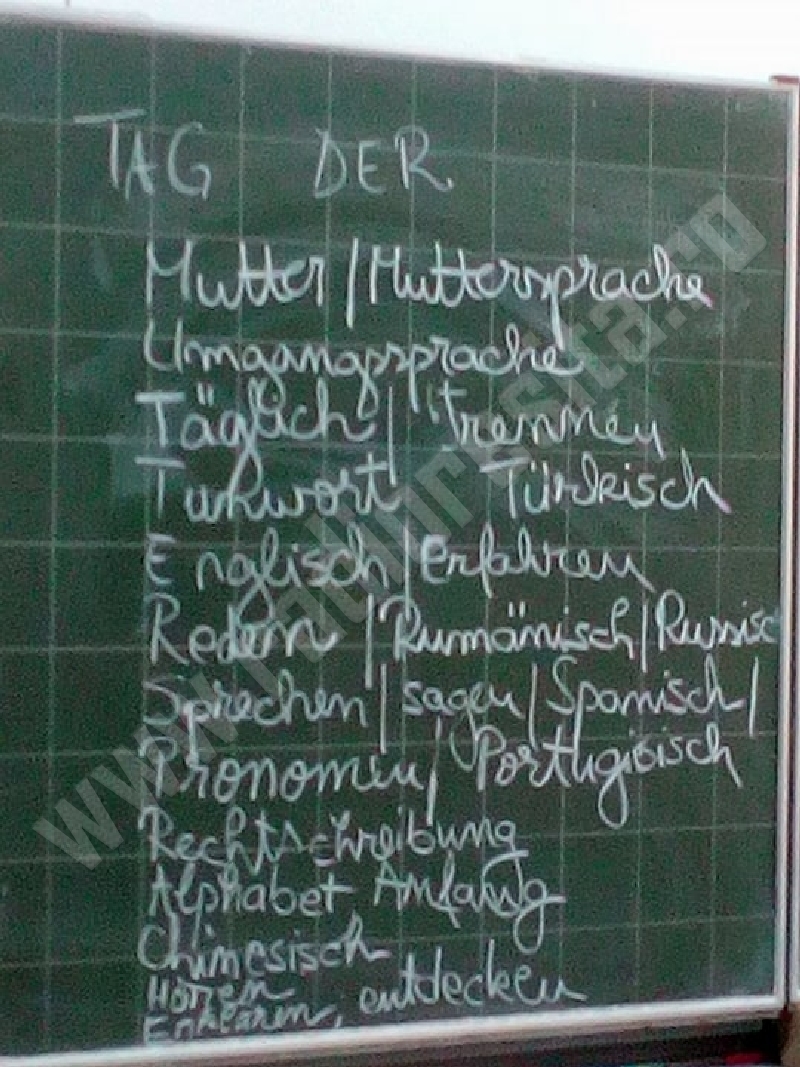 TAG DER
Mutter / Muttersprache
Umgangssprache
Täglich / trennen
Tunwort Türkisch
Englisch / erfahren
Reden / Rumänisch / Russisc
Sprechen / sagen / Spanisch /
Pronomen / Portugisisch
Rechtschreibung
Alphabet Anfang
Chinesisch
Hören
Erklären, entdecken